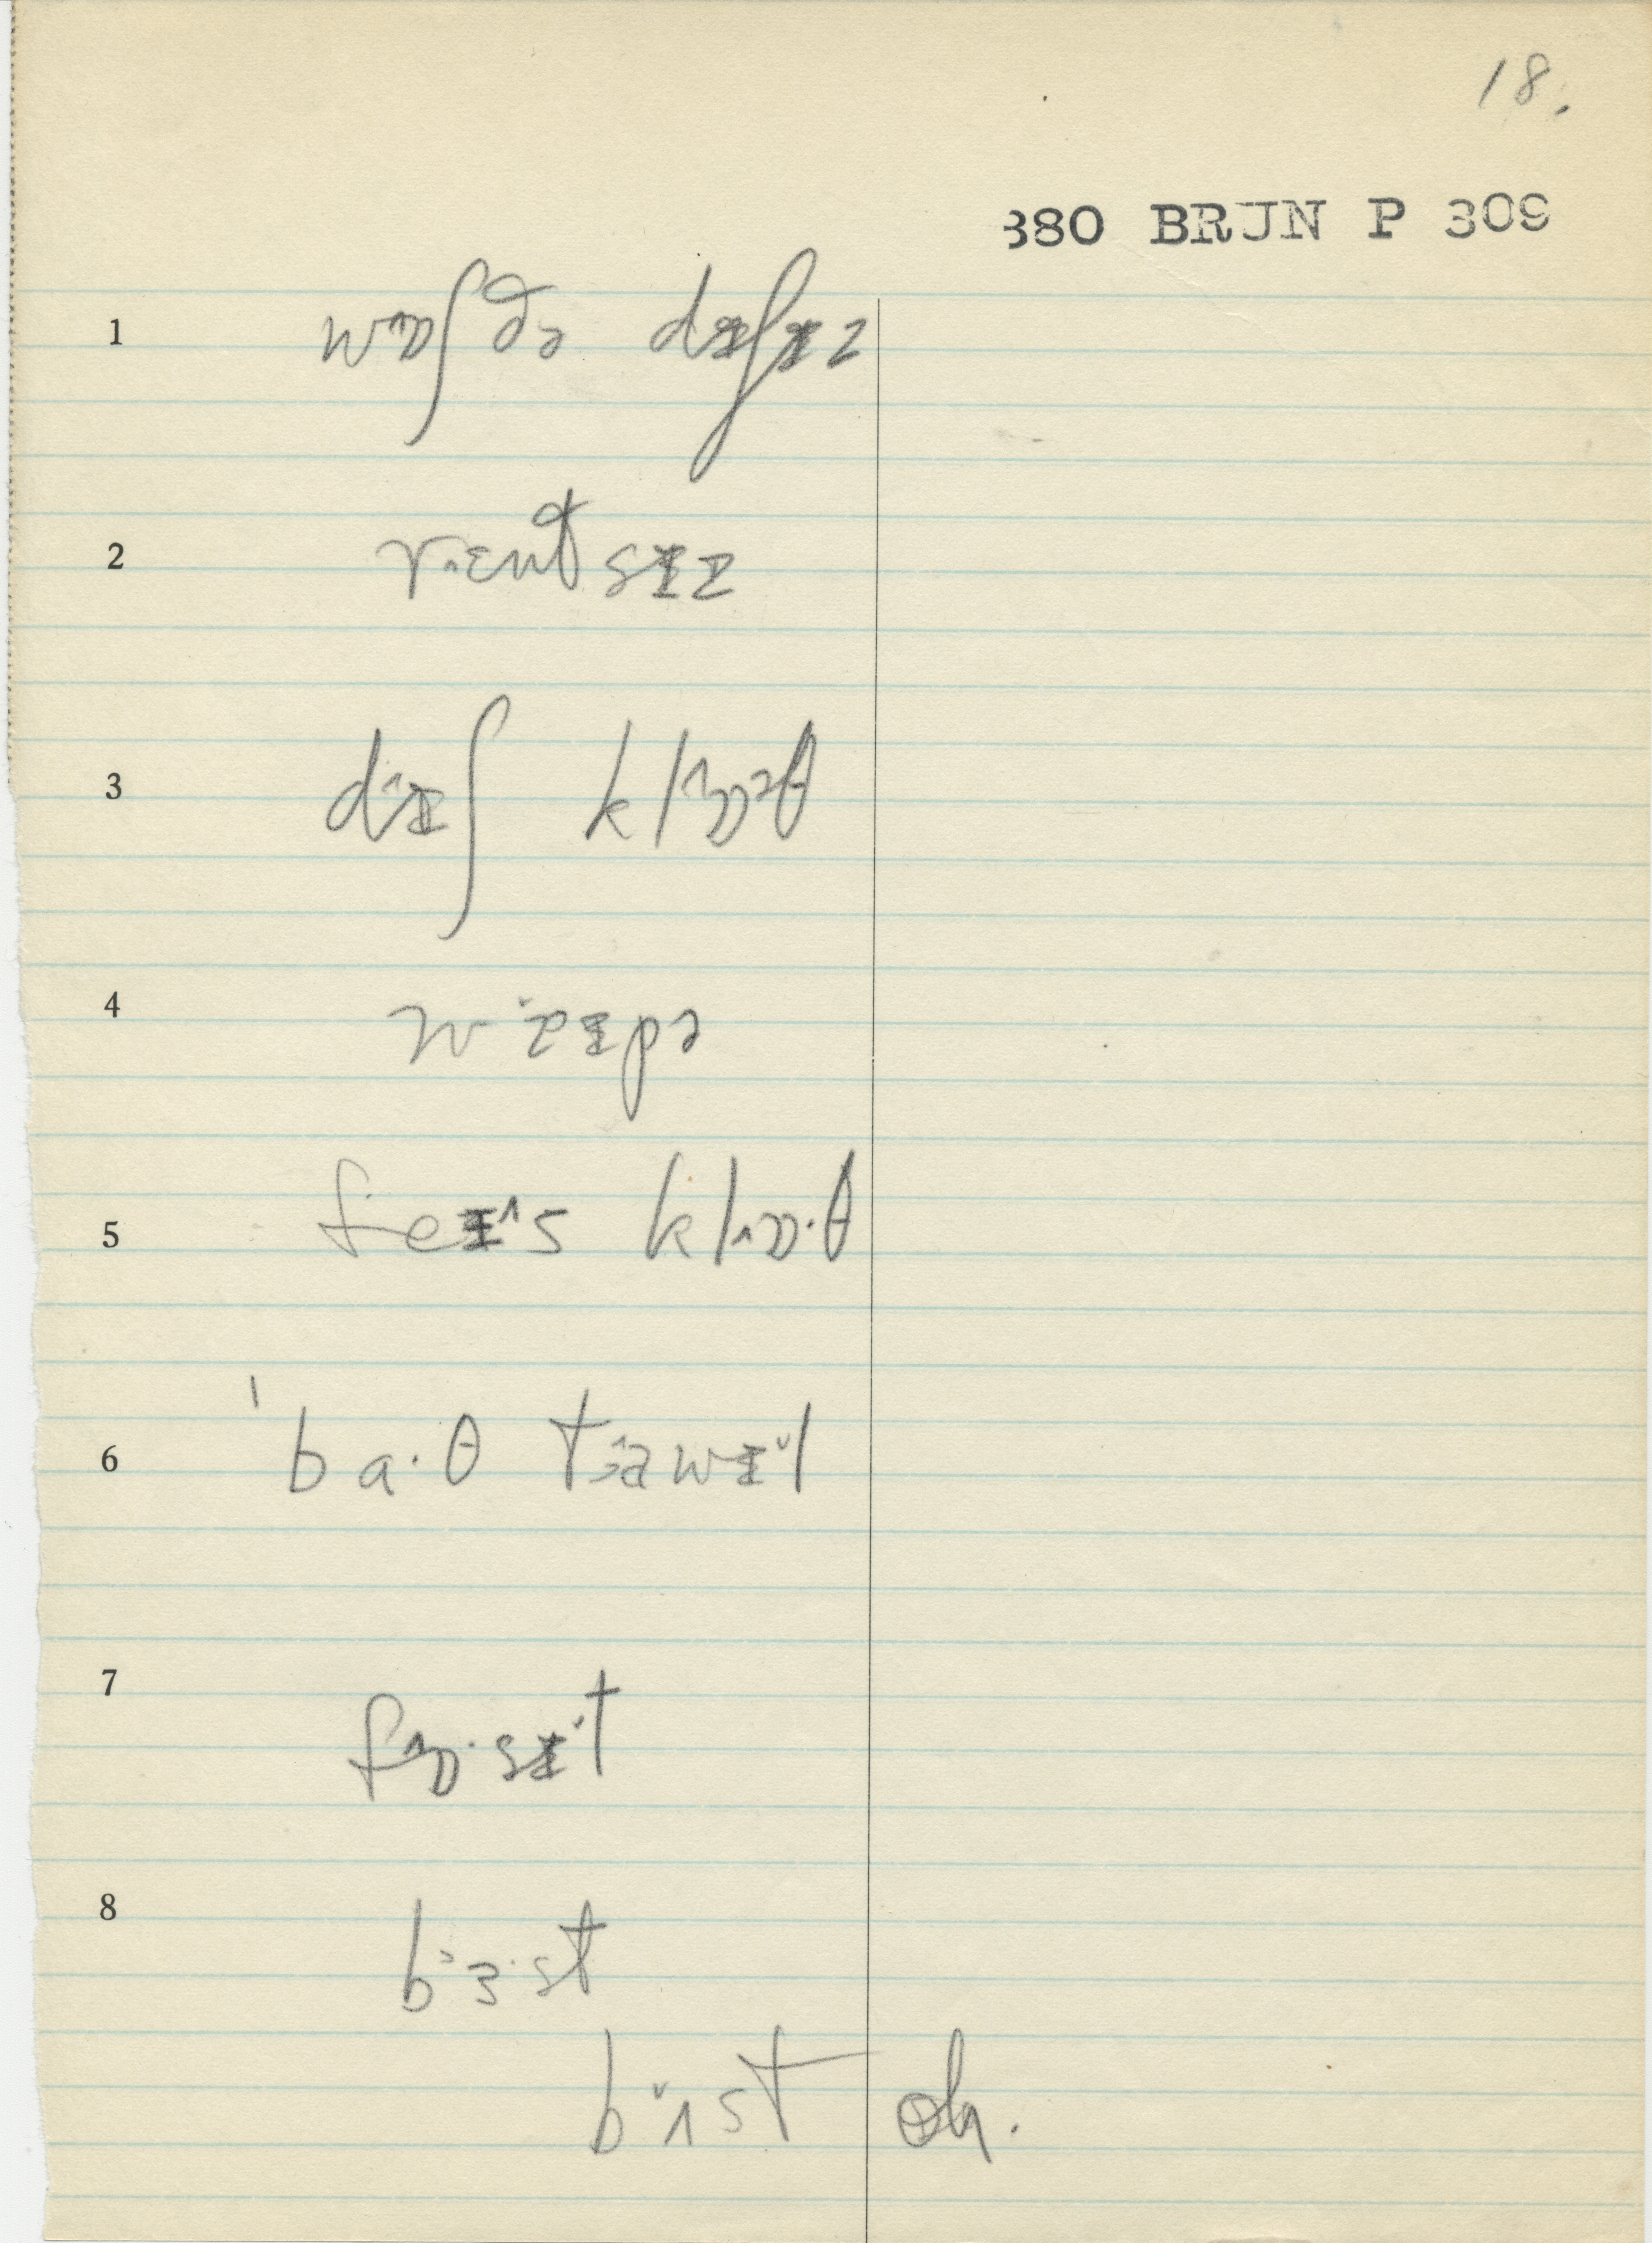 18.
880 BRJN P 309
1 wɒ˄ʃ ðə dɪʃɪz
2 r.ɛntʃ sɪz
3 dɪ˄ʃ klɒ˄əθ
4 wɪpə
5 feɪ˄s klɒ˄·θ
6 ˈba·θ taʊwɪ˅l
7 fɒ˄·sɪ˅t
8 bɜ·st
bʌ˅st oh.